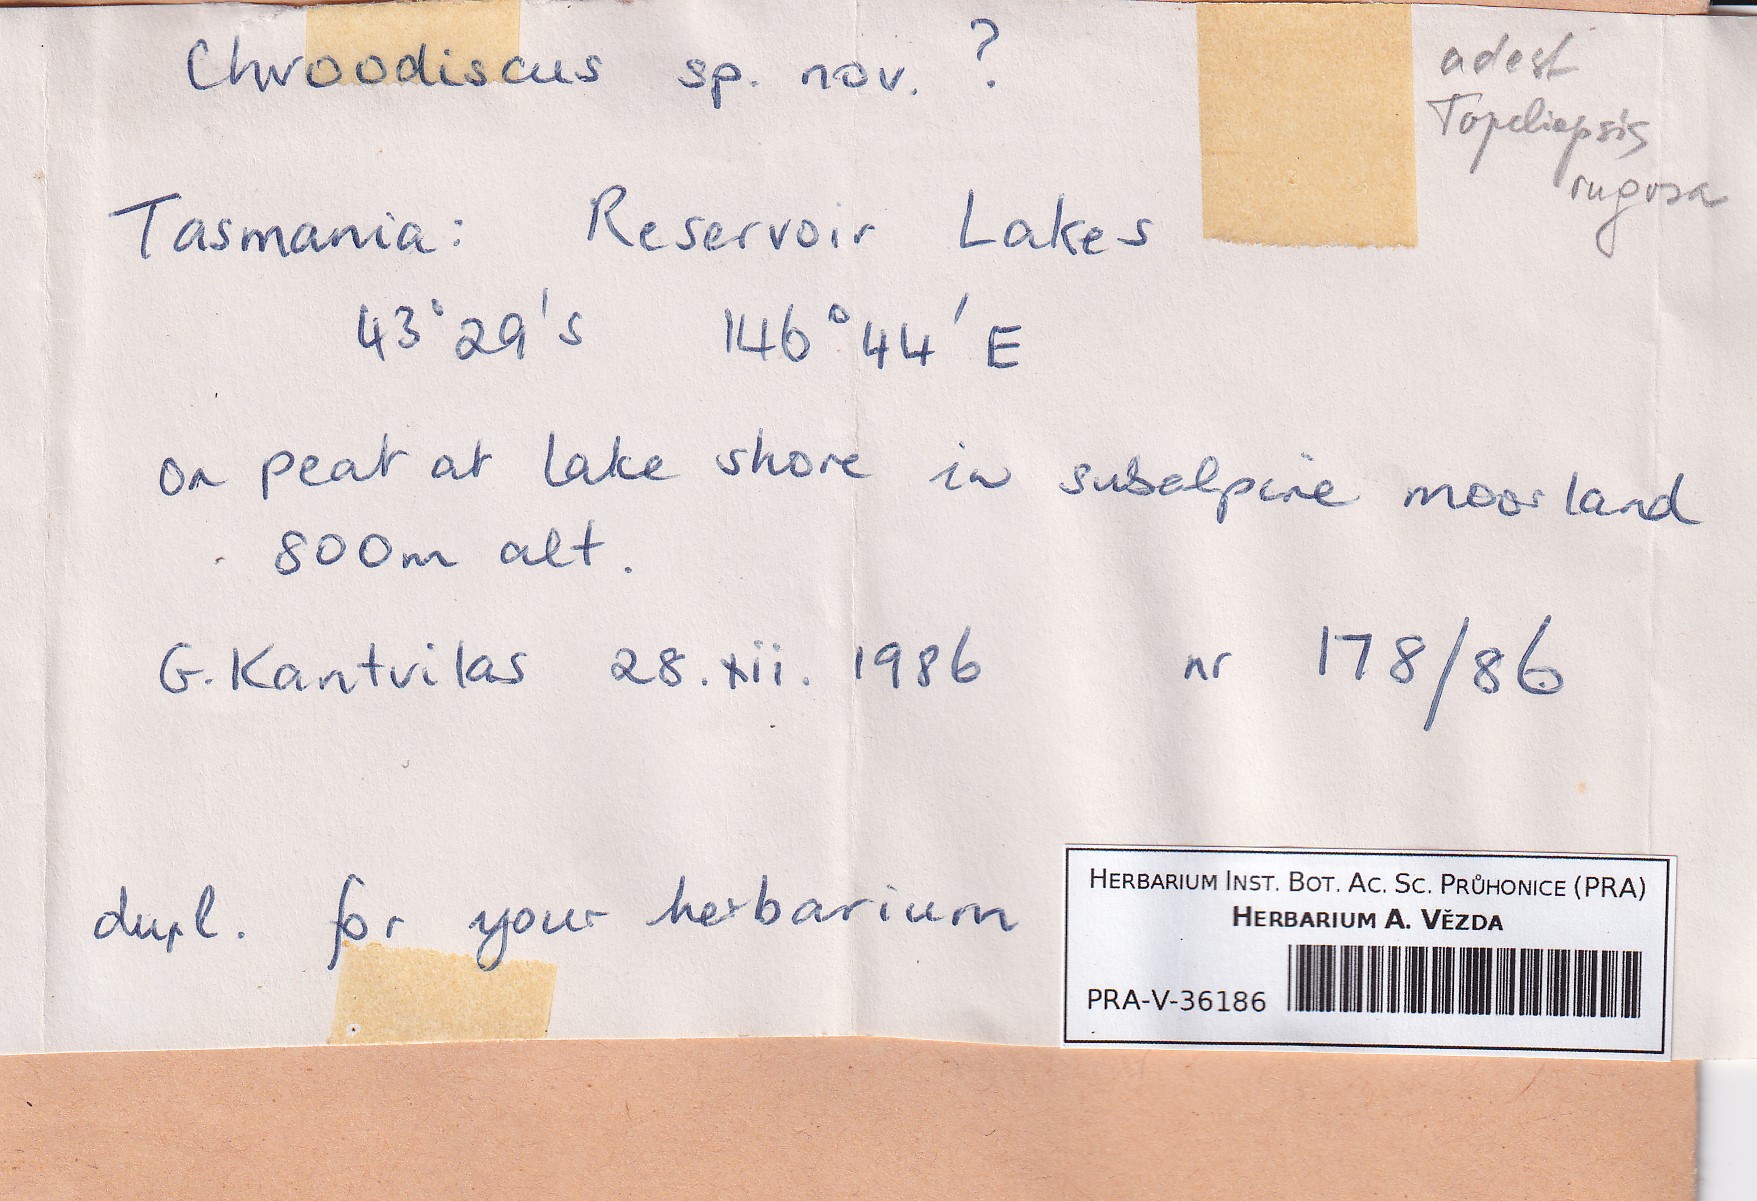 Chroodiscus sp. nov. ?
adest
Topeliopsis
rugosa
Tasmania: Reservoir Lakes
43°29's 146°44'E
on peat at lake shore in subalpine moorland
800m alt.
G. Kantvilas 28.xii.1986 nr 178/86
dupl. for your herbarium
HERBARIUM INST. BOT. AC. SC. PRŮHONICE (PRA)
HERBARIUM A. VĚZDA
PRA-V-36186